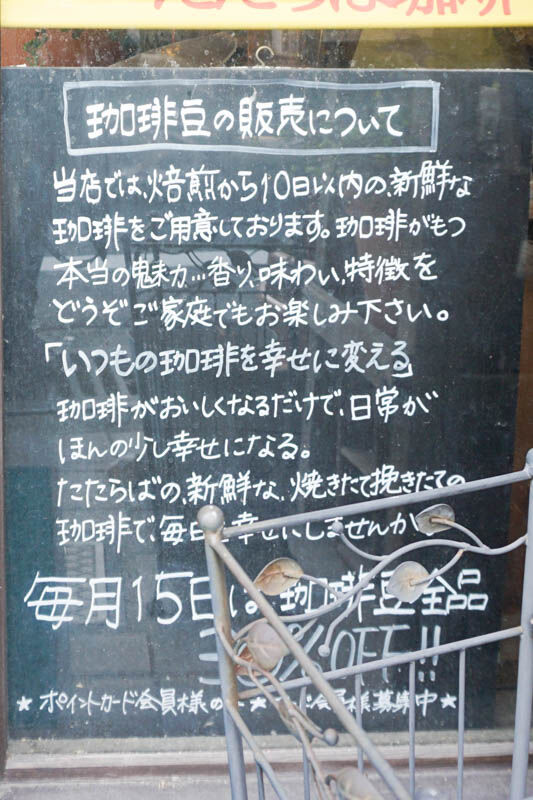 たたらば珈琲
珈琲豆の販売について
当店では、焙煎から10日以内の、新鮮な
珈琲をご用意しております。珈琲がもつ
本当の魅力…香り、味わい、特徴を
どうぞご家庭でもお楽しみ下さい。
「いつもの珈琲を幸せに変える」
珈琲がおいしくなるだけで、日常が
ほんの少し幸せになる。
たたらばの、新鮮な、焼きたて挽きたての
珈琲で、毎日 幸せにしませんか
毎月15日は 珈琲豆全品
%OFF!!
★ポイントカード会員様の ★ ード会員様募集中★